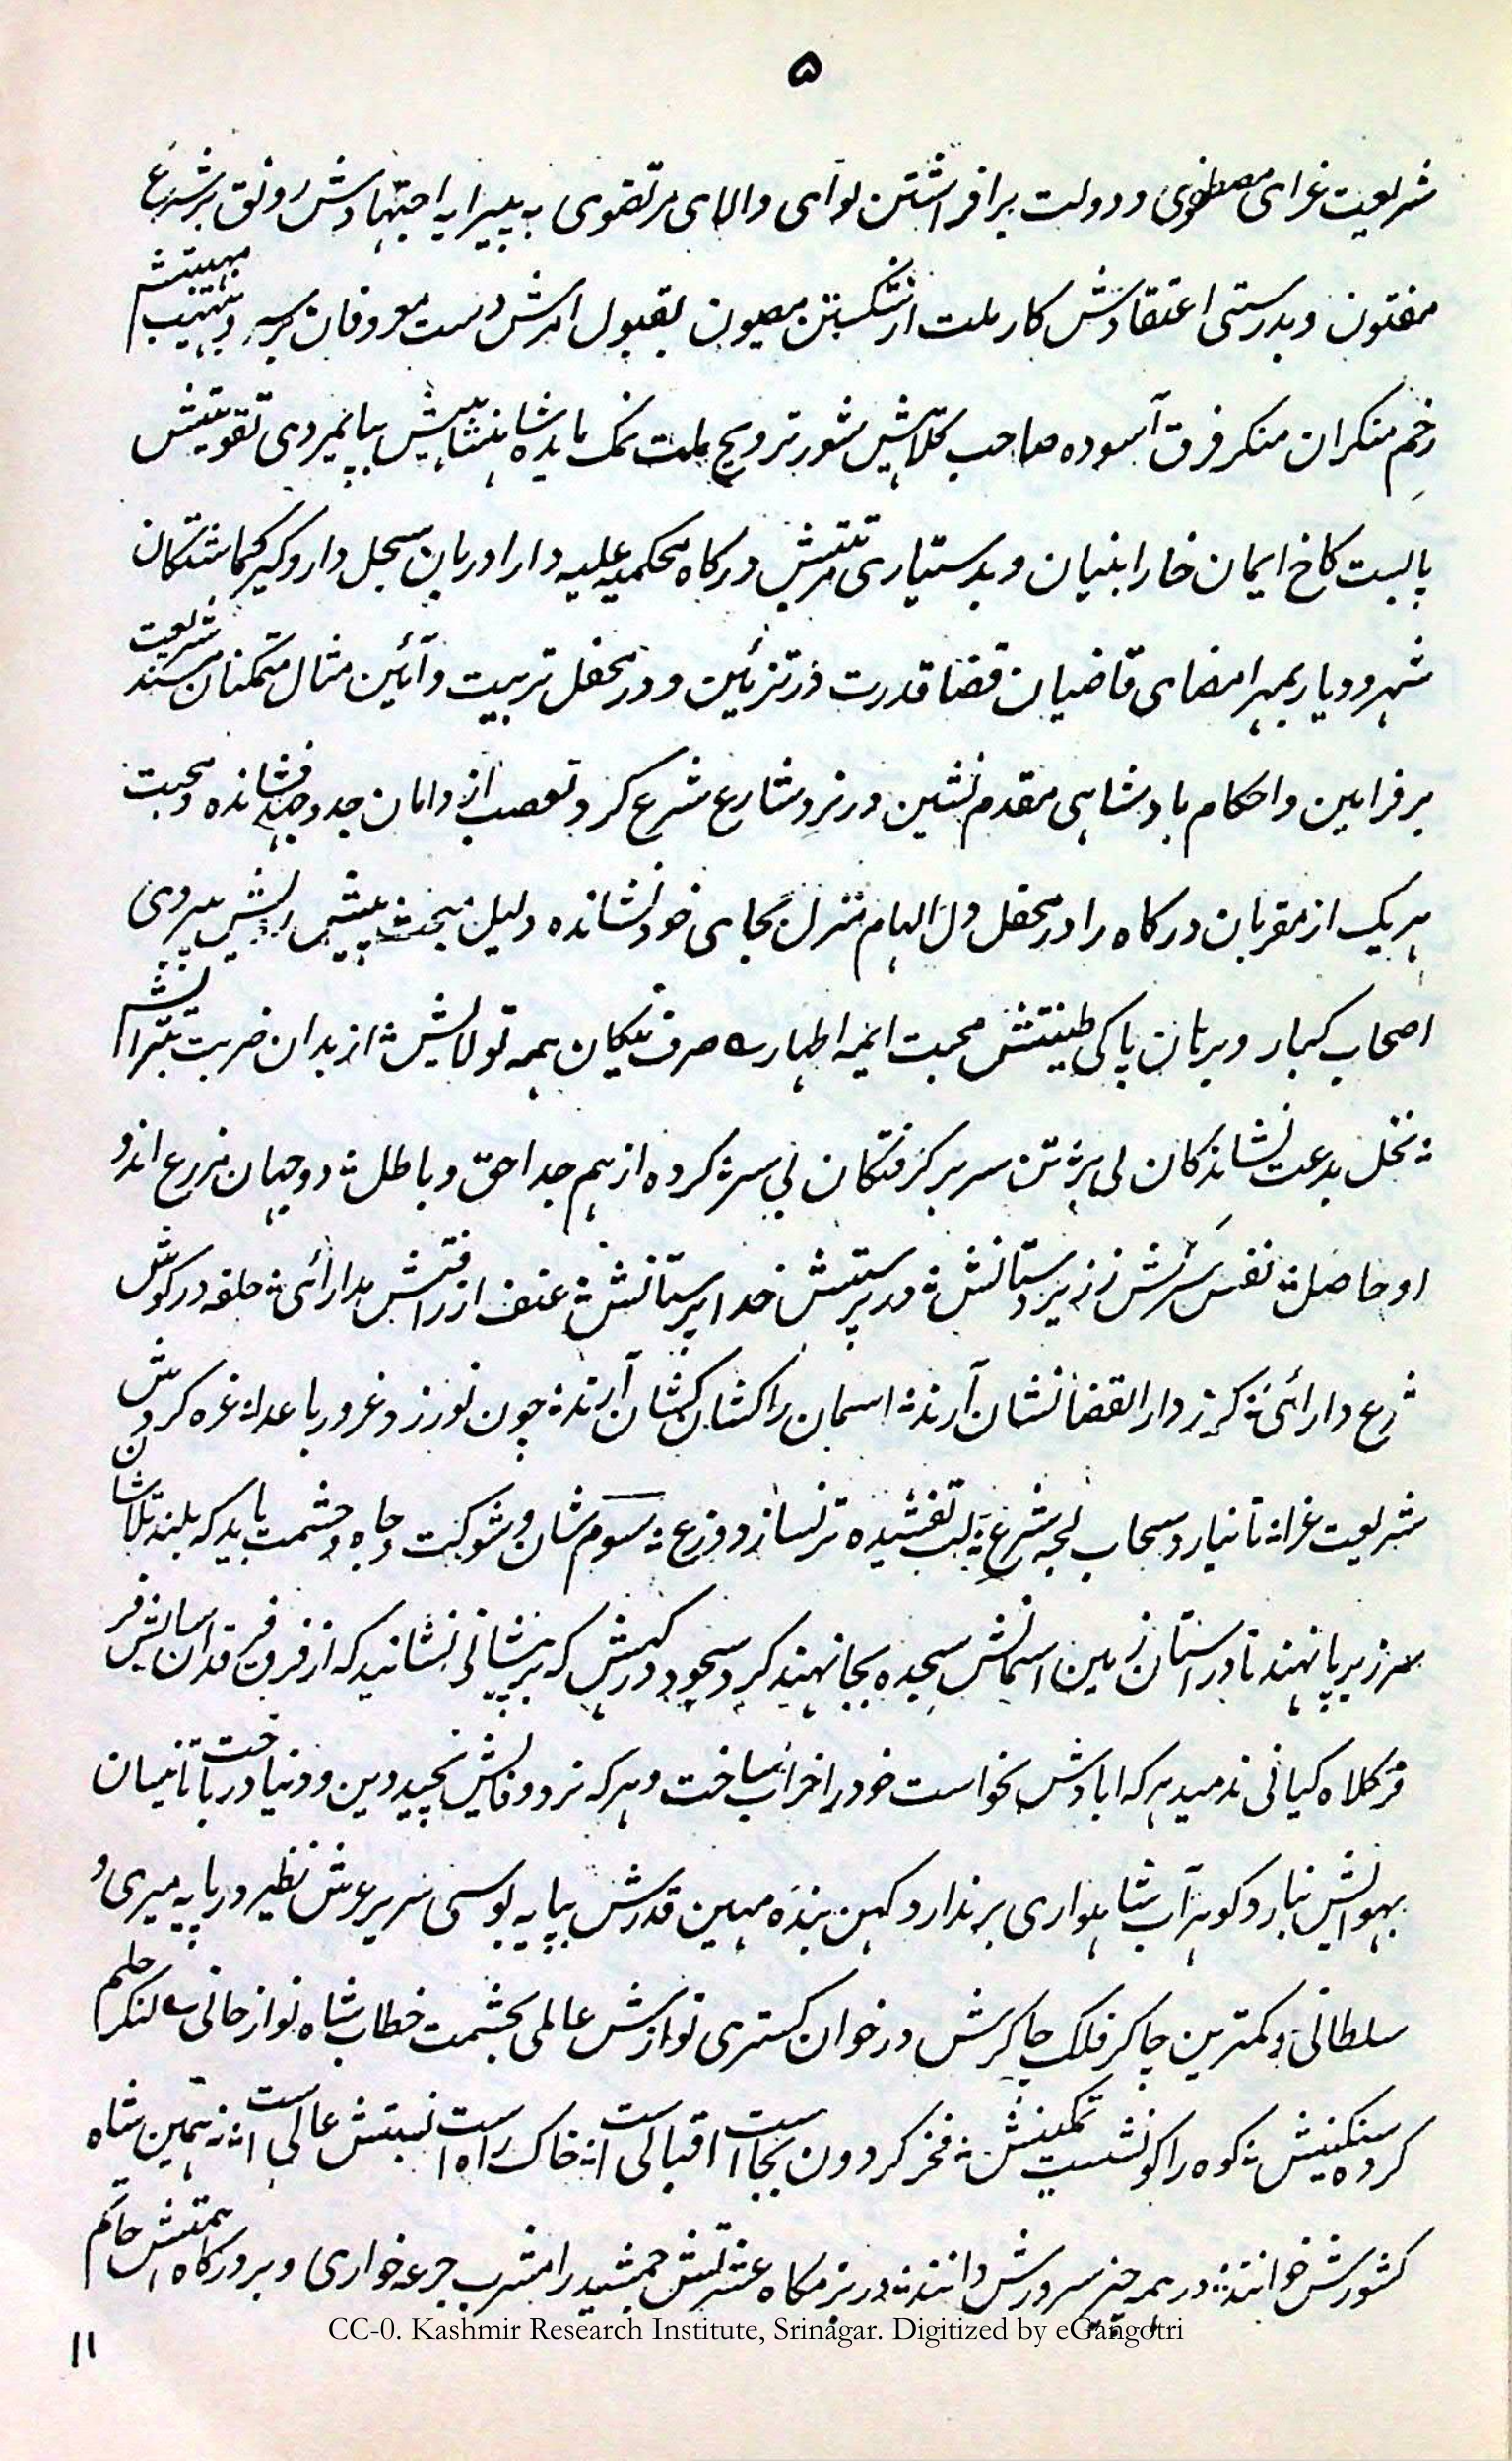 ۵
شریعت غرای مصطفوی و دولت برافراشتن لوای والای مرتضوی به پیرایه اجتهادش رونق بر شرع
مفتون و بدرستی اعتقادش کار ملت از شکستن مصون بقبول امرش دست معروفان بر سر و نهیب نهیش
زخم منکران منکر فرق آسوده صاحب کلاهیش شور ترویج ملت نمک مایده شاهنشاهیش بپایمردی تقویتش
پابست کاخ ایمان خارا بنیان و بدستیاری درگاه محکمه علیه دارا دربان سجل دار و گیر گماشتگان
شهر و دیار بمهر امضای قاضیان قضا قدرت در تزئین و در محفل تربیت و آئین مثال متمکنان مسند شریعت
بر فرامین و احکام بادشاهی مقدم نشین در نرد شارع شرع گرد تعصب از دامان جد و جهد فشانده و محبت
هریک از مقربان درگاه را در محفل دل الهام منزل بجای خود نشانده دلیل پیش پیروی
اصحاب کبار و برهان پاکی طینتش محبت ایمه اطهار ؎ صرف نیکان همه تولایش ؞ از بدان ضربت تبرایش
؞ نخل بدعت نشاندگان بی بر ؞ تن سر برگرفتگان بی سر ؞ کرده از هم جدا حق و باطل ؞ دو جهان مزرع اند و
او حاصل ؞ نفس سرکش ز زیردستانش ؞ در پرستش خداپرستانش ؞ عنف از رافتش مدارائی ؞ حلقه در گوش
شرع دارائی ؞ گر ز دارالقضا نشان آرند ؞ اسمان را کشان کشان آرند ؞ چون نورزد غرور با عدا ؞ غره گردش
شریعت غرا ؞ تا نبارد سحاب لجه شرع ؞ لب تفشیده تر نسازد زرع ؞ سوم شان و شوکت و جاه و حشمت باید که بلند تلاشان
سر زیر پا نهند تا در استان زمین اسمانش سجده بجا نهند گرد سجود درگهش که بر پیشانی نشانید که از فرق فرقدان سایش فر
فر کلاه کیانی ندمید هرکه ابادش نخواست خود را خراب ساخت و هرکه نرد وفایش نچید دین و دنیا در باخت تا نیسان
بهوایش نبارد گوهر آب شاهواری بر ندارد کهن بنده مهین قدرش بپایه بوسی سریر عرش نظیر در پایه میری و
سلطانی و کمترین چاکر فلک چاکرش در خوان گستری نوازش عالمی بحشمت خطاب شاه نواز خانی ؎ لنگر حلم
کرده سنگینش ؞ کوه را کو نشست تمکینش ؞ فخر گردون بجاست اقبالی است ؞ خاک راه است نسبتش عالی است ؞ نه همین شاه
کشورش خوانند ؞ در همه چیز سرورش دانند ؞ در بزمگاه عشرتش جمشید را مشرب جرعه خواری و بر درگاه همتش حاتم
CC-0. Kashmir Research Institute, Srinagar. Digitized by eGangotri
۱۱